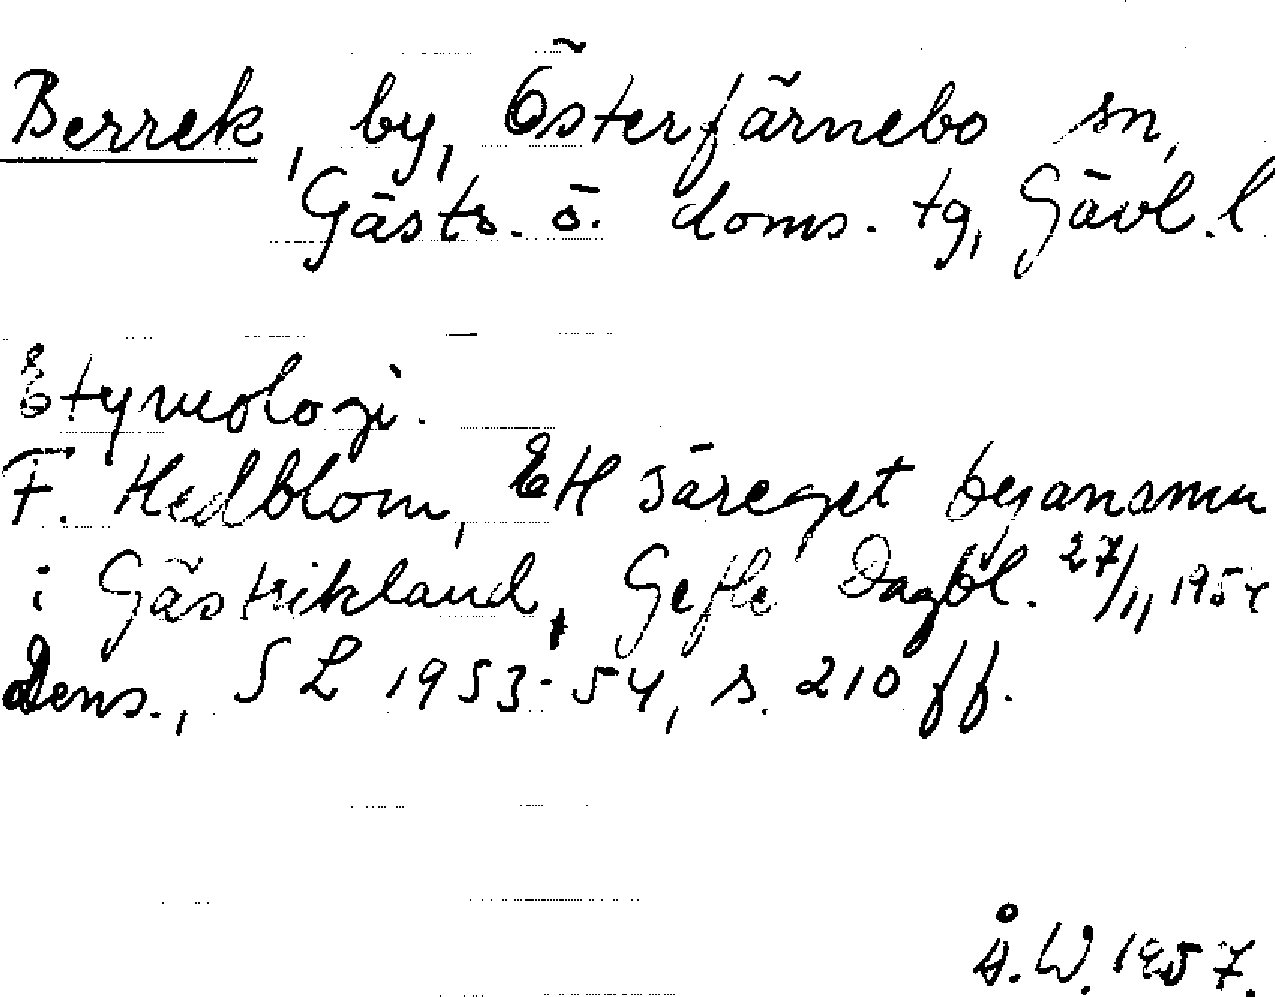 Berrek, by, Österfärnebo sn,
Gästr. ö. doms. tg, Gävl. l
Etymologi.
F. Hedblom, Ett säreget bynamn
i Gästrikland, Gefle Dagbl. 27/11 1954
Dens., SL 1953-54, s. 210 ff.
Å. W. 1957.